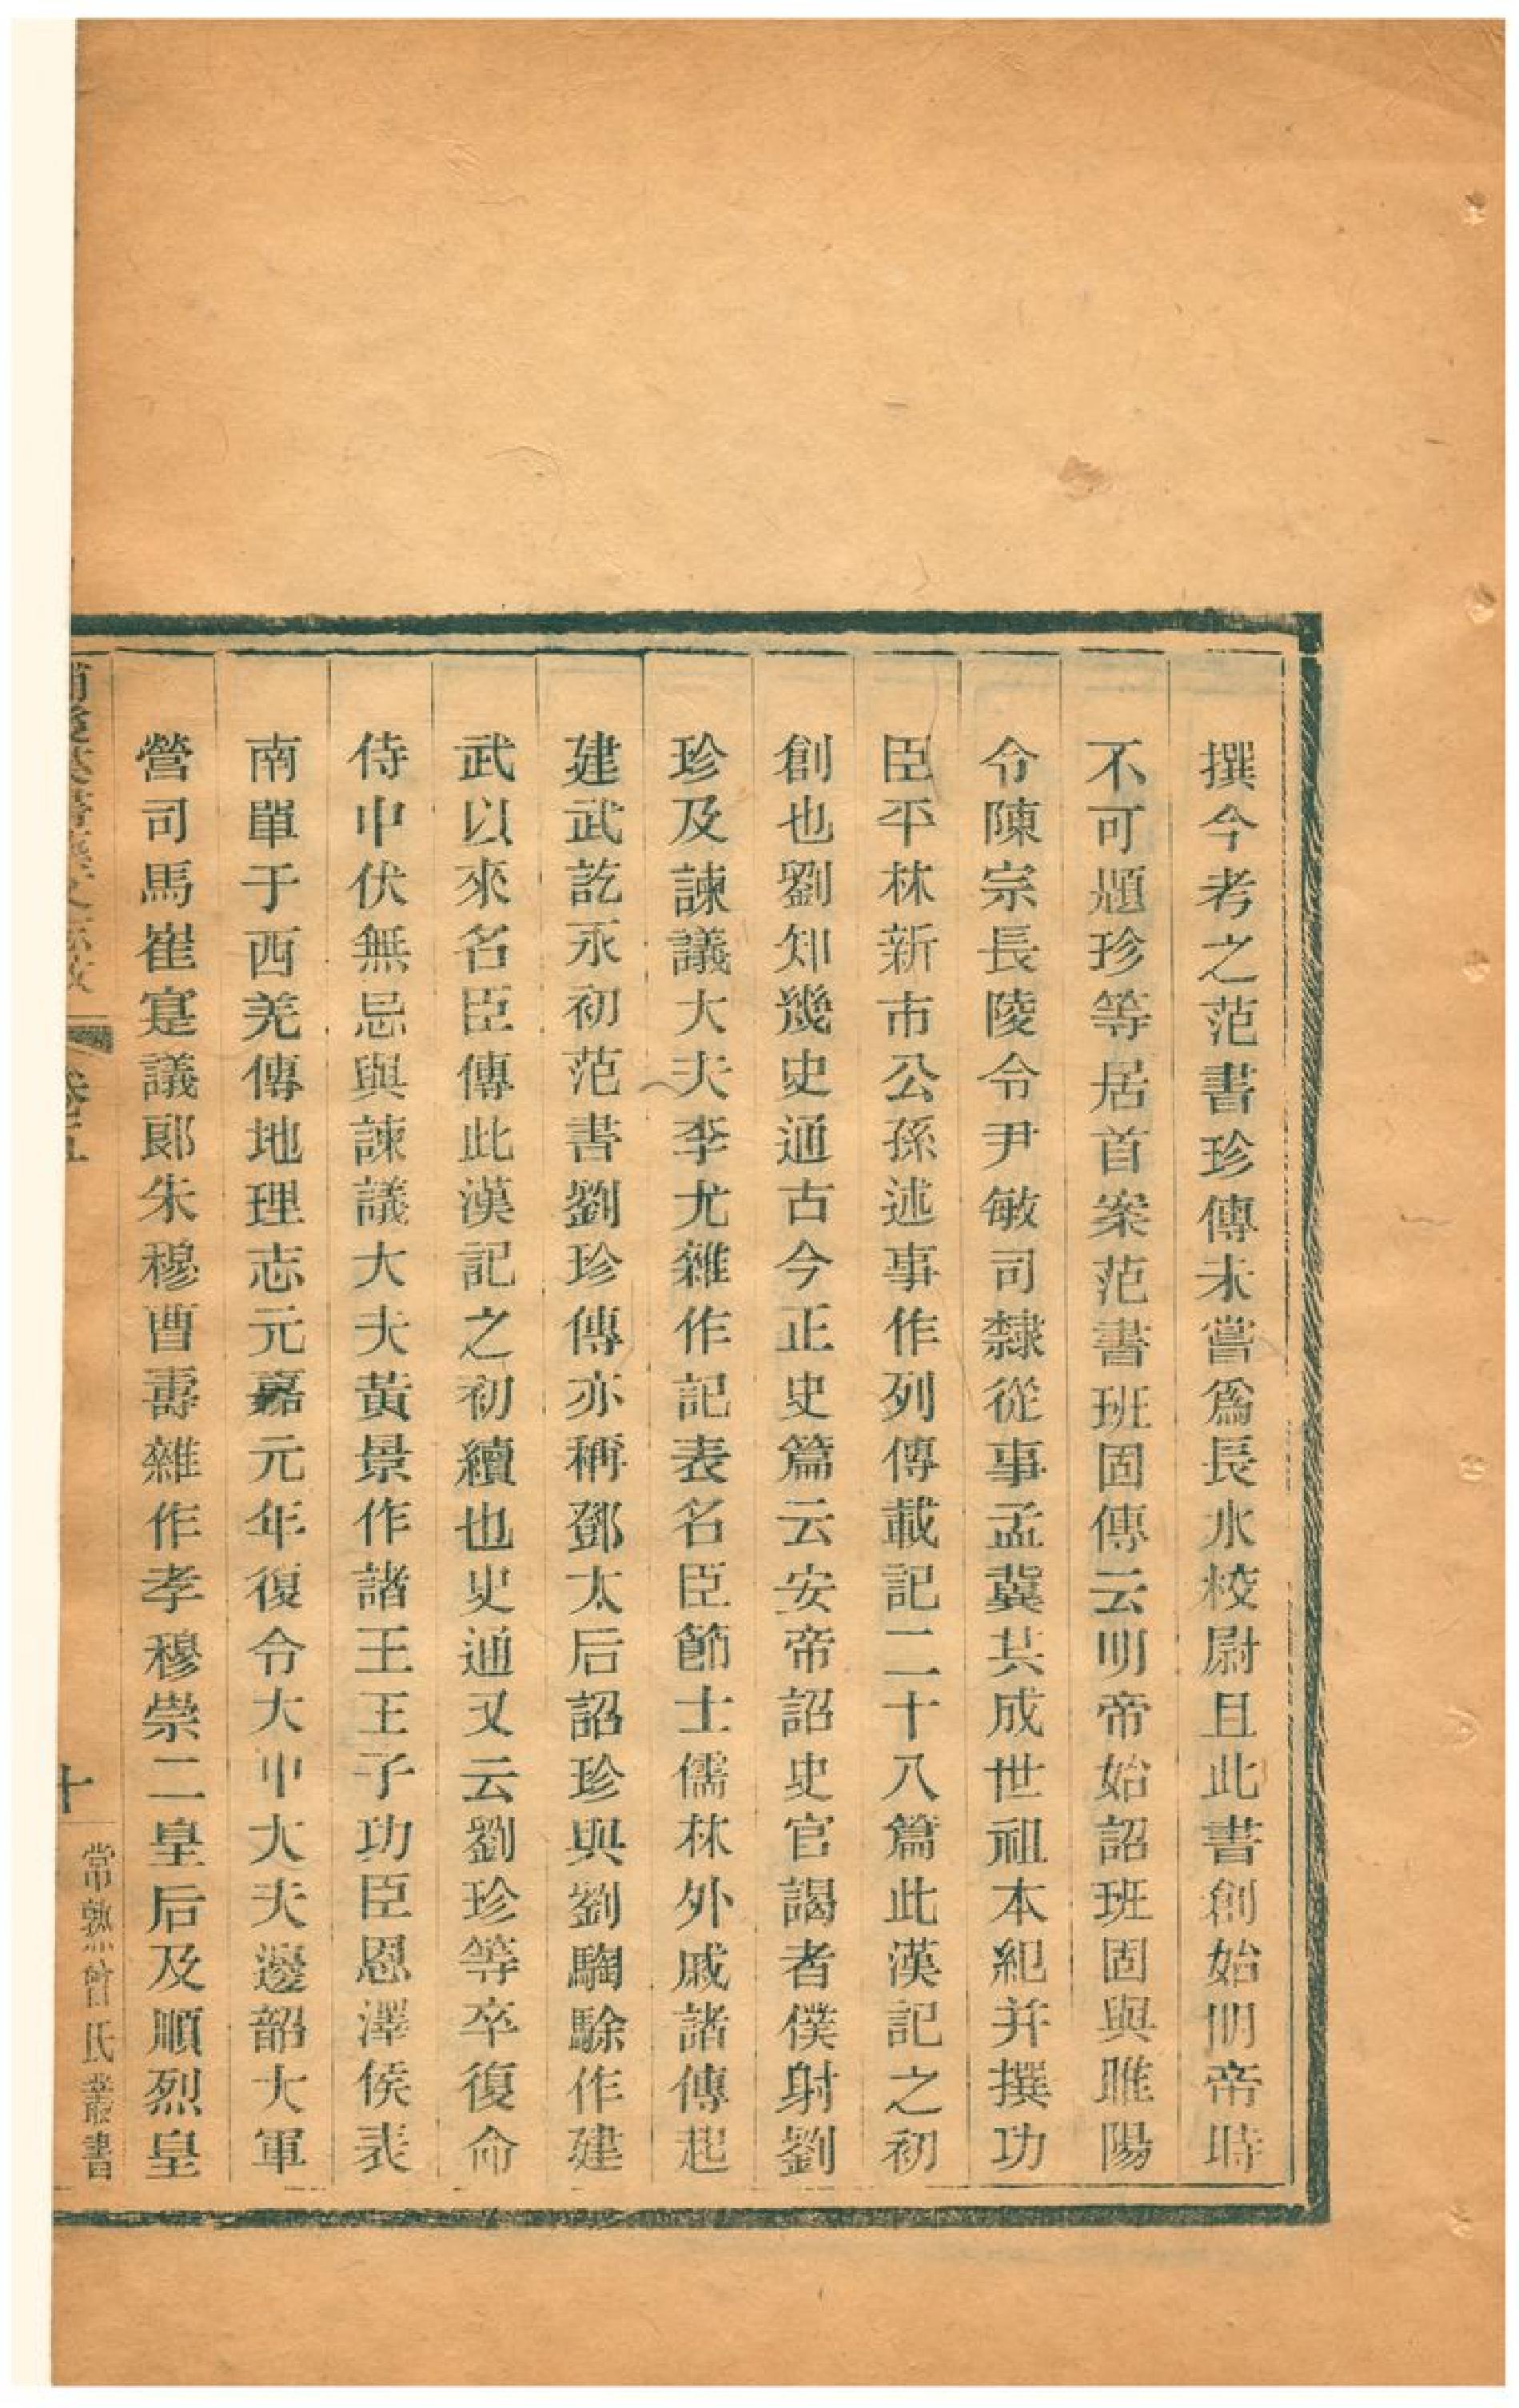 撰今考之范書珍傳未嘗爲長水校尉且此書創始明帝時
不可題珍等居首案范書班固傳云明帝始詔班固與睢陽
令陳宗長陵令尹敏司隸從事孟冀共成世祖本紀并撰功
臣平林新市公孫述事作列傳載記二十八篇此漢記之初
創也劉知幾史通古今正史篇云安帝詔史官謁者僕射劉
珍及諫議大夫李尤雜作記表名臣節士儒林外戚諸傳起
建武訖永初范書劉珍傳亦稱鄧太后詔珍與劉騊駼作建
武以來名臣傳此漢記之初續也史通又云劉珍等卒復命
侍中伏無忌與諫議大夫黃景作諸王王子功臣恩澤侯表
南單于西羌傳地理志元嘉元年復令大中大夫邊韶大軍
營司馬崔寔議郎朱穆曹壽雜作孝穆崇二皇后及順烈皇
補後漢書藝文志攷 卷五 十 常熟曾氏叢書